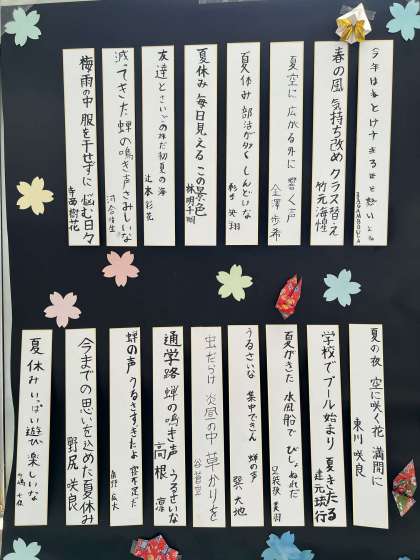 今年は
春の風 気持ち改め クラス替え
竹元海惺
夏空に 広がる外に 響く声
金澤歩希
夏休み 部活が多く しんどいな
夏休み 毎日見える この景色
友達と さいごの 初夏の海
辻本彩花
減ってきた 蝉の鳴き声 さみしいな
梅雨の中 服を干せずに 悩む日々
寺西樹花
夏の夜 空に咲く花 満開に
東川咲良
学校で プール始まり 夏きたる
夏がきた 水風船で びしょぬれだ
うるさいな 集中できん 蝉の声
巽大地
虫だらけ 炎昼の中 草かりを
通学路 蝉の鳴き声 うるさいな
高根 凛
蝉の声 うるさすぎたよ 寝不足だ
今までの 思いを込めた 夏休み
野尻 咲良
夏休み いっぱい遊び 楽しいな